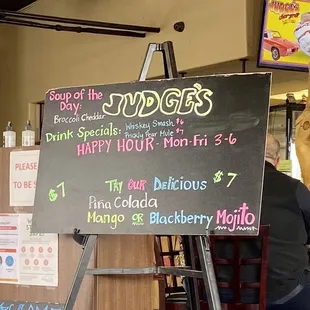 Soup of the
Day:
Broccoli Cheddar
JUDGE'S
Drink Specials:
Whiskey Smash $6
Prickly Pear Mule $7
HAPPY HOUR - Mon-Fri 3-6
$7 TRY OUR Delicious $7
Piña Colada
Mango OR Blackberry Mojito
PLEASE
TO BE
JUDGE'S